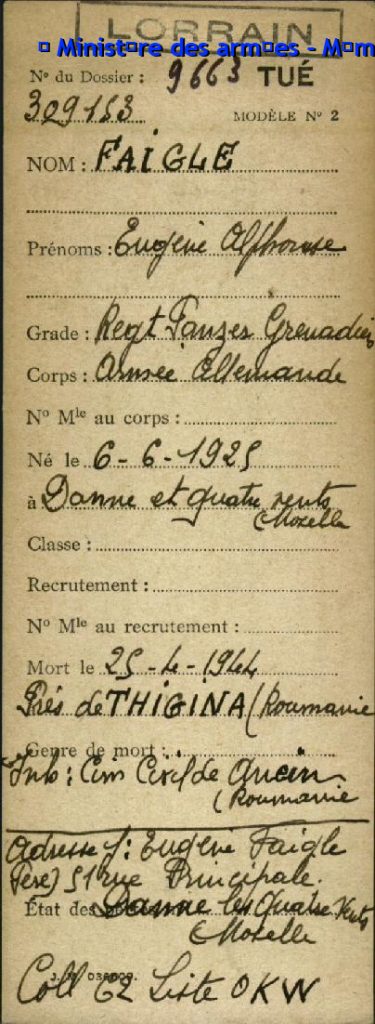 LORRAIN
Ministère des armées - Mém
N° du Dossier : 9663 TUÉ
309153 MODÈLE N° 2
NOM : FAIGLE
Prénoms : Eugène Alphonse
Grade : Regt Panzer Grenadier
Corps : Armée Allemande
N° Mle au corps :
Né le 6-6-1925
à Danne et quatre vents
Moselle
Classe :
Recrutement :
N° Mle au recrutement :
Mort le 25-4-1944
Près de THIGINA (Roumanie
Genre de mort :
Inh : Cim Civil de
(Roumanie
Adresse f : Eugène Faigle
Père) 51 rue Principale
État des Danne les Quatre Vents
Moselle
Coll C2 Liste OKW